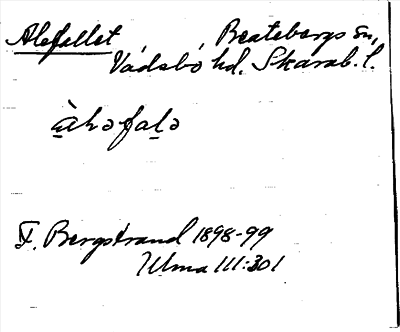 Alefallet Beatebergs sn,
Vadsbo hd. Skarab. l.
àləfalə
F. Bergstrand 1898-99
Ulma 111:301